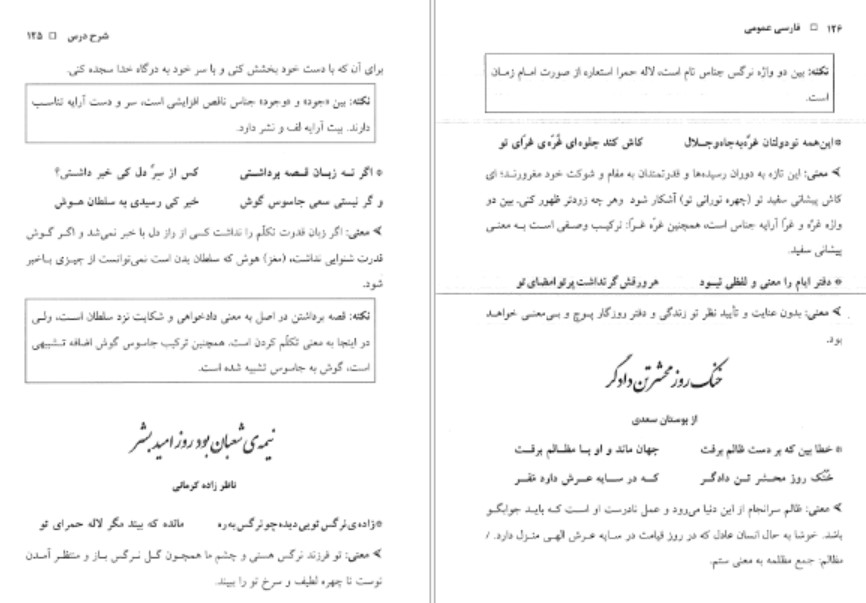 شرح درس □ ۱۲۵
برای آن که با دست خود بخشش کنی و با سر خود به درگاه خدا سجده کنی.
نکته: بین «جود» و «وجود» جناس ناقص افزایشی است، سر و دست آرایه تناسب
دارند. بیت آرایه لف و نشر دارد.
* اگر نـه زبـان قـصه برداشـتی کس از سِرِّ دل کی خبر داشـتی؟
و گر نیستی سعی جاسوس گوش خبر کی رسیدی به سلطان هـوش
➤ معنی: اگر زبان قدرت تکلّم را نداشت کسی از راز دل با خبر نمی‌شد و اگـر گـوش
قدرت شنوایی نداشت، (مغز) هوش که سلطان بدن است نمی‌توانست از چیـزی باخبر
شود.
نکته: قصه برداشتن در اصل به معنی دادخواهی و شکایت نزد سلطان اسـت، ولـی
در اینجا به معنی تکلّم کردن است. همچنین ترکیب جاسوس گوش اضافه تـشبیهی
است، گوش به جاسوس تشبیه شده است.
نیمه‌ی شعبان بود روز امید بشر
ناظر زاده کرمانی
*زاده‌ی نرگس تویی دیده چو نرگس به ره مانده که بیند مگر لاله حمرای تو
➤ معنی: تو فرزند نرگس هستی و چشم ما همچـون گـل نـرگس بـاز و منتظـر آمـدن
توست تا چهره لطیف و سرخ تو را ببیند.
۱۲۶ □ فارسی عمومی
نکته: بین دو واژه نرگس جناس تام است، لاله حمرا استعاره از صورت امـام زمـان
است.
*این همه نودولتان غرّه به جاه و جـلال کاش کند جلوه‌ای غُرّه‌ی غرّای تو
➤ معنی: این تازه به دوران رسیده‌ها و قدرتمندان به مقام و شوکت خود مغرورنـد؛ ای
کاش پیشانی سفید تو (چهره نورانی تو) آشکار شود وهر چه زودتر ظهور کنی. بین دو
واژه غرّه و غرّا آرایه جناس است، همچنین غرّه غـرّا: ترکیـب وصـفی اسـت بـه معنـی
پیشانی سفید.
* دفتر ایام را معنی و لفظی نبـود هر ورقش گر نداشت پرتو امضای تو
➤ معنی: بدون عنایت و تأیید نظر تو زندگی و دفتر روزگار پـوچ و بـی‌معنـی خواهـد
بود.
خنک روز محشر تن دادگر
از بوستان سعدی
* خطا بین که بر دست ظالم برفت جهان ماند و او بـا مظـالم برفـت
خُنَک روز محـشر تـن دادگـر کـه در سـایه عـرش دارد مَقـر
➤ معنی: ظالم سرانجام از این دنیا می‌رود و عمل نادرست او اسـت کـه بایـد جوابگـو
باشد. خوشا به حال انسان عادل که در روز قیامت در سـایه عـرش الهـی منـزل دارد. /
مظالم: جمع مظلمه به معنی ستم.